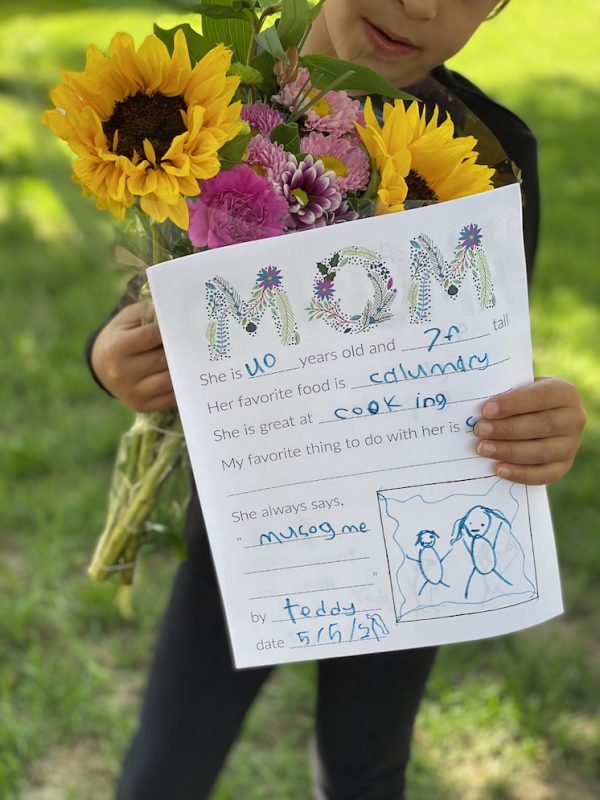 MOM
She is 40 years old and 7f tall
Her favorite food is calumary
She is great at cooking
My favorite thing to do with her is
She always says,
" musog me
"
by teddy
date 5/5/21